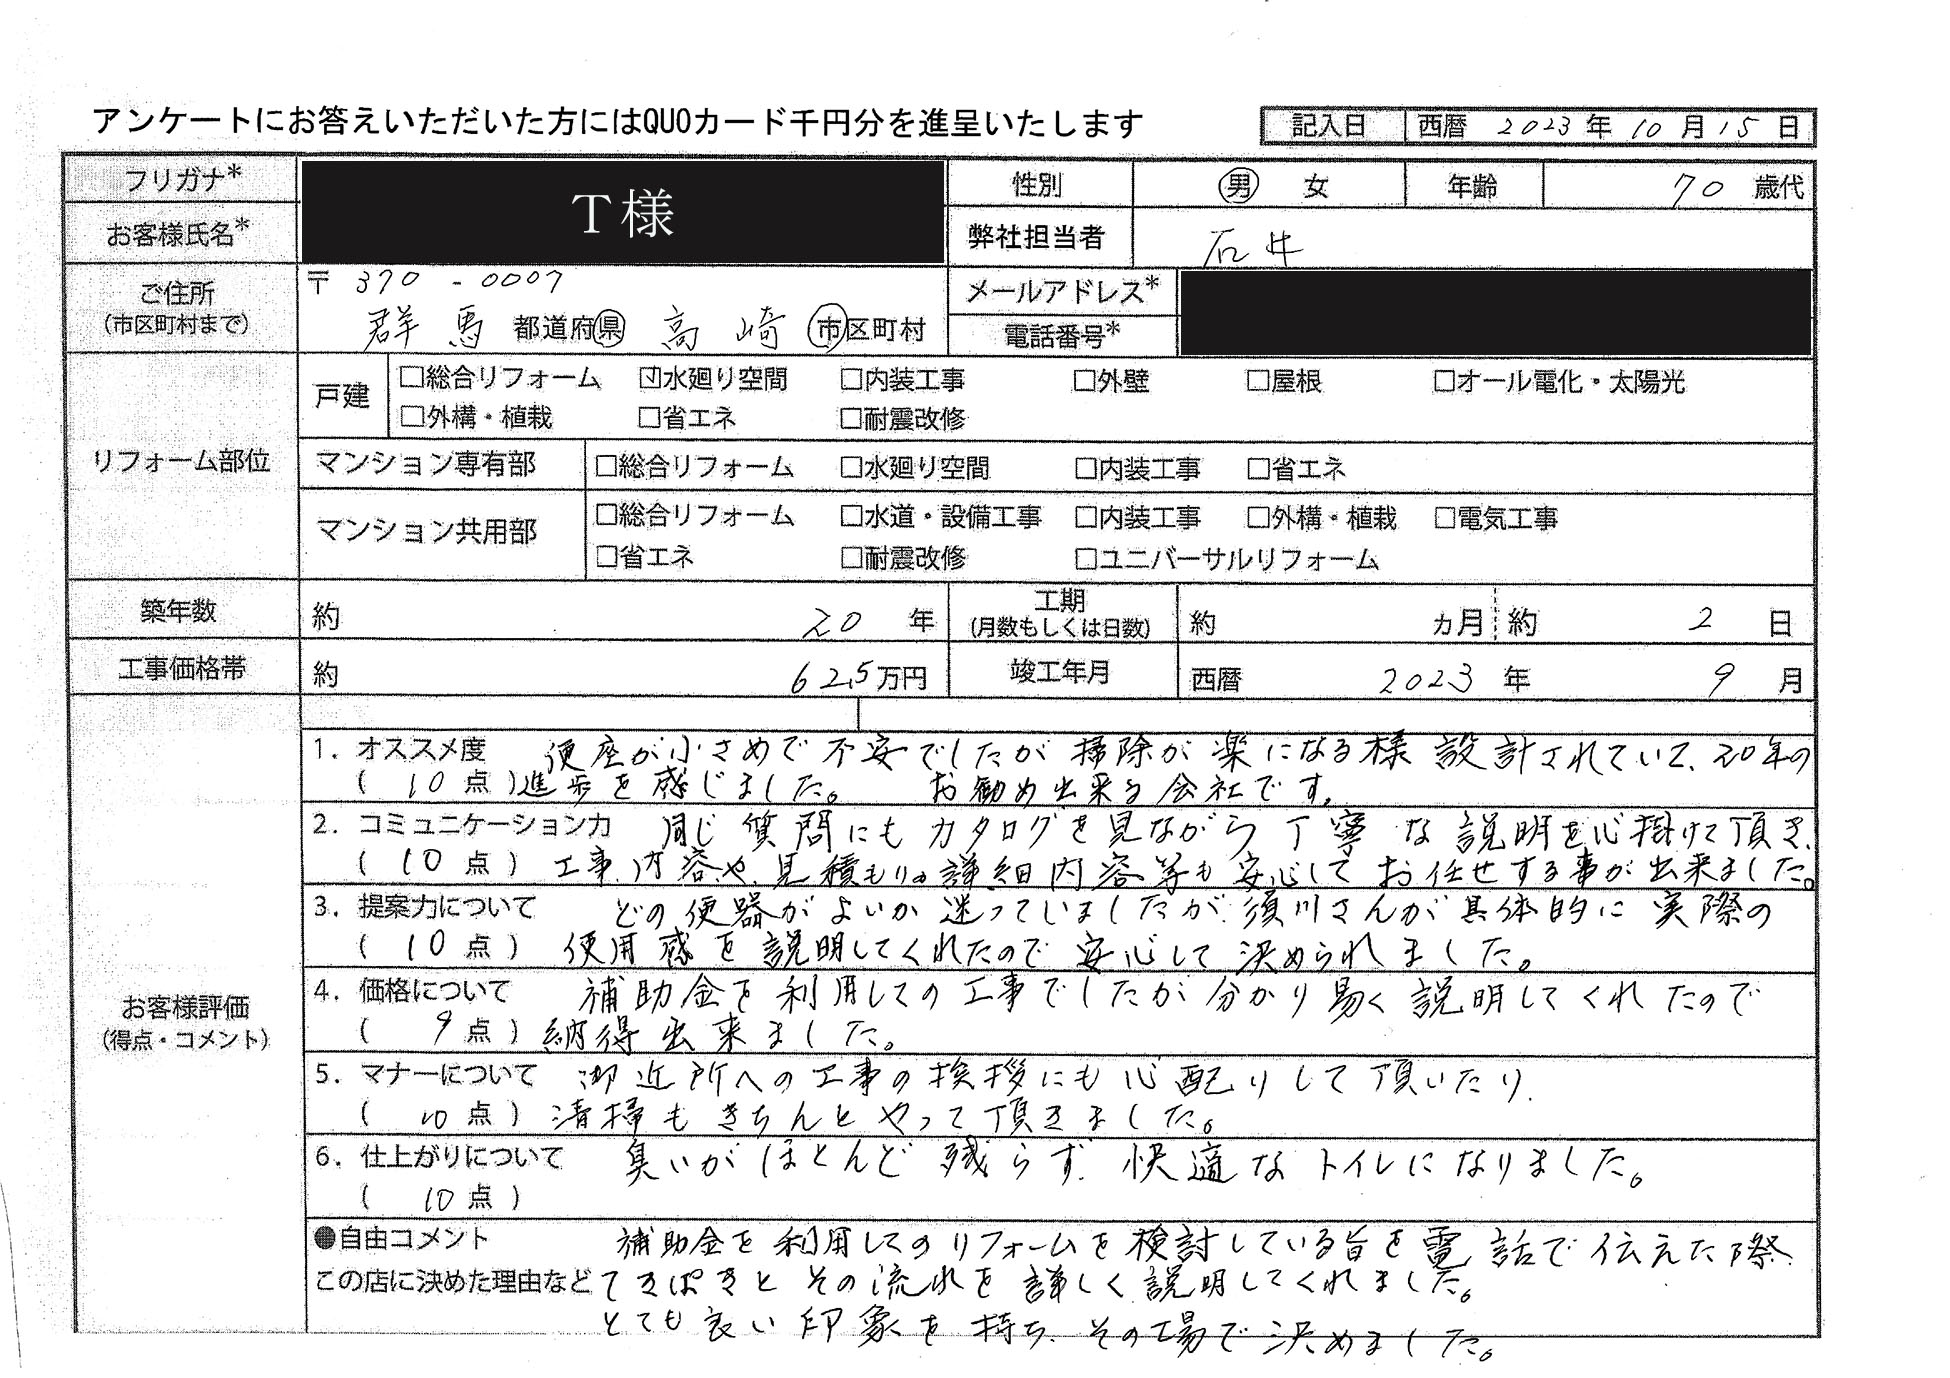 アンケートにお答えいただいた方にはQUOカード千円分を進呈いたします
記入日 西暦 2023 年 10 月 15 日
フリガナ* T様 性別 男 女 年齢 70 歳代
お客様氏名* 弊社担当者 石井
ご住所 〒 370 - 0007 メールアドレス*
(市区町村まで) 群馬 都道府県 高崎 市区町村 電話番号*
リフォーム部位
戸建 □総合リフォーム ☑水廻り空間 □内装工事 □外壁 □屋根 □オール電化・太陽光
□外構・植栽 □省エネ □耐震改修
マンション専有部 □総合リフォーム □水廻り空間 □内装工事 □省エネ
マンション共用部 □総合リフォーム □水道・設備工事 □内装工事 □外構・植栽 □電気工事
□省エネ □耐震改修 □ユニバーサルリフォーム
築年数 約 20 年 工期 (月数もしくは日数) 約 カ月 約 2 日
工事価格帯 約 62.5 万円 竣工年月 西暦 2023 年 9 月
お客様評価
(得点・コメント)
1. オススメ度 便座が小さめで不安でしたが掃除が楽になる様設計されていて、20年の
( 10 点 )進歩を感じました。 お勧め出来る会社です。
2. コミュニケーション力 同じ質問にもカタログを見ながら丁寧な説明を心掛けて頂き、
( 10 点 ) 工事内容や、見積もりの詳細内容等も安心してお任せする事が出来ました。
3. 提案力について どの便器がよいか迷っていましたが、須川さんが具体的に実際の
( 10 点 ) 使用感を説明してくれたので安心して決められました。
4. 価格について 補助金を利用しての工事でしたが分かり易く説明してくれたので
( 9 点 ) 納得出来ました。
5. マナーについて 御近所への工事の挨拶にも心配りして頂いたり、
( 10 点 ) 清掃もきちんとやって頂きました。
6. 仕上がりについて 臭いがほとんど残らず、快適なトイレになりました。
( 10 点 )
●自由コメント 補助金を利用してのリフォームを検討している旨を電話で伝えた際、
この店に決めた理由など てきぱきとその流れを詳しく説明してくれました。
とても良い印象を持ち、その場で決めました。